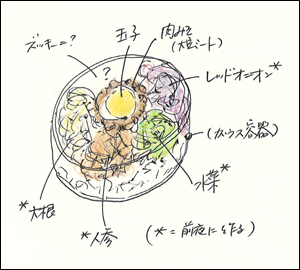 ズッキーニ?
玉子
肉みそ
(大豆ミート)
?
レッドオニオン*
(ガラス容器)
水菜*
*人参
*大根
(*=前夜に作る)